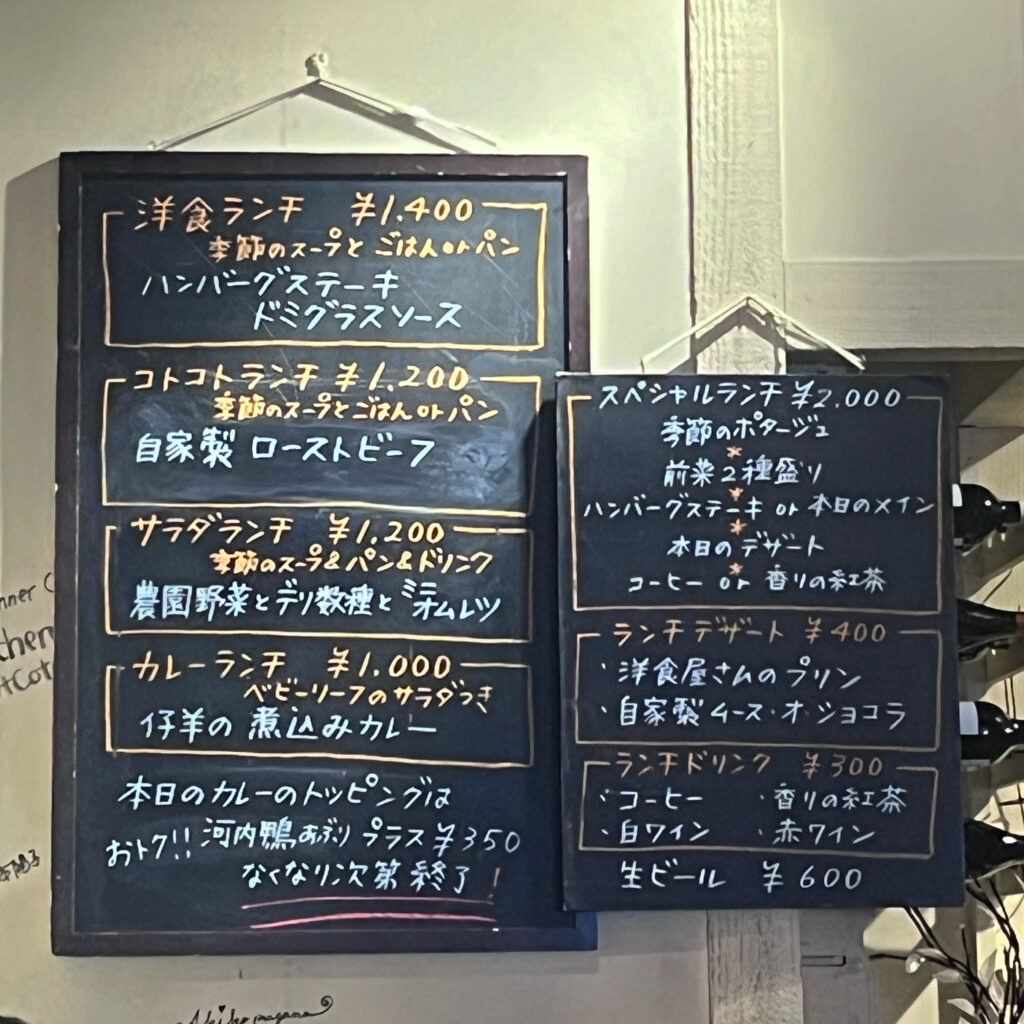 洋食ランチ ¥1.400
季節のスープと ごはんorパン
ハンバーグステーキ
ドミグラスソース
コトコトランチ ¥1.200
季節のスープとごはんorパン
自家製 ローストビーフ
サラダランチ ¥1.200
季節のスープ&パン&ドリンク
農園野菜とデリ数種とミニオムレツ
カレーランチ ¥1.000
ベビーリーフのサラダつき
仔羊の煮込みカレー
本日のカレーのトッピングは
おトク!! 河内鴨あぶり プラス¥350
なくなり次第終了!
スペシャルランチ ¥2.000
季節のポタージュ
*
前菜2種盛り
*
ハンバーグステーキ or 本日のメイン
*
本日のデザート
*
コーヒー or 香りの紅茶
ランチデザート ¥400
・洋食屋さんのプリン
・自家製ムース・オ・ショコラ
ランチドリンク ¥300
・コーヒー ・香りの紅茶
・白ワイン ・赤ワイン
生ビール ¥600